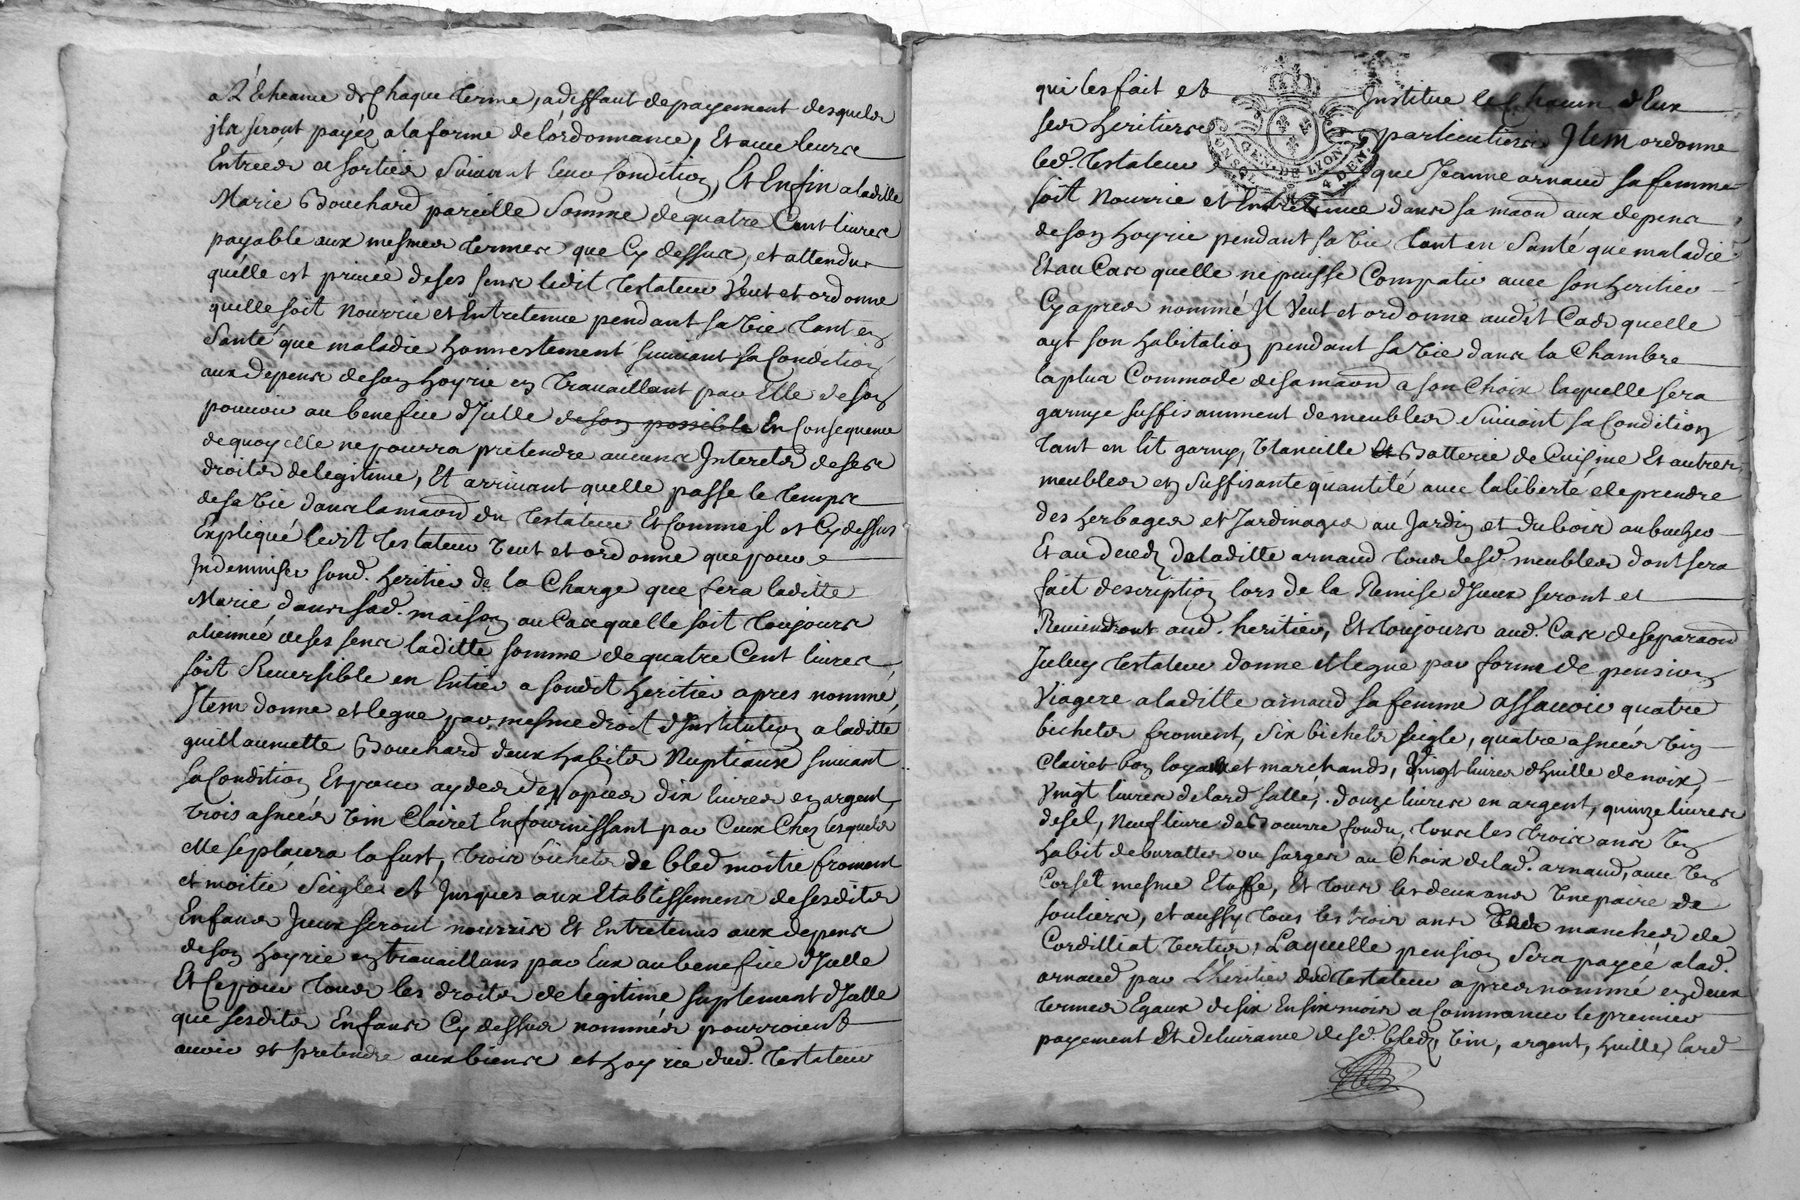 a L'Echeance de Chaque terme, a deffaut de payement desquels
jls seront payéz a la forme de l'ordonnance, Et avec leurs
Entreés et sorties suivant leur Condition, Et Enfin a laditte
Marie Bouchard pareille somme de quatre Cent livres
payable aux mesmes termes que Cy dessus, et attendu
qu'elle est privée de ses sens ledit testateur Veut et ordonne
quelle soit nourrie et Entretenue pendant sa vie tant en
santé que maladie honnestement suivant sa Condition
aux depens de son hoyrie en travaillant par Elle de son
pouvoir au benefice d'Jcelle de son possible En Consequence
de quoy elle ne pourra pretendre aucuns Interets de ses
droits de legitime, Et arrivant quelle passe le temps
de sa vie dans la maon du testateur Et Comme jl est Cy dessus
Expliqué ledit testateur veut et ordonne que pour
Indemniser sond. heritier de la Charge que fera laditte
Marie dans sad. maison au Cas quelle soit toujours
alienneé de ses sens laditte somme de quatre Cent livres
soit Reversible en Entier a sondit heritier apres nommé,
Jtem donne et legue par mesme droit d'Institution a laditte
guillaumette Bouchard deux habits Nuptiaux suivant
sa Condition Et pour ayder de Nopces dix livres en argent,
trois asneés vin Clairet En fournissant par Ceux Chez lesquels
elle se placera la fust, trois bichets de bled moitié froment
et moitié seigle et Jusques aux Etablissemens de sesdits
Enfans Jceux seront nourris Et Entretenus aux depens
de son hoyrie en travaillans par Eux au benefice d'Jcelle
Et Ce pour tous les droits de legitime suplement d'Jcelle
que sesdits Enfans Cy dessus nommés pourroient
avoir et pretendre aux biens et hoyrie dud. testateur
qui les fait et Institue le Chacun d'Eux
ses heritiers particuliers Jtem ordonne
led. testateur que Jeanne arnaud sa femme
soit nourrie et Entretenue dans sa maon aux depens
de son hoyrie pendant sa vie tant en santé que maladie
Et au Cas quelle ne puisse Compatir avec son heritier
Cy apres nommé Jl Veut et ordonne audit Cas quelle
ayt son habitation pendant sa vie dans la Chambre
la plus Commode de sa maon a son Choix laquelle sera
garnye suffisamment de meubles suivant sa Condition
tant en lit garny, vaicelle et Batterie de Cuisine Et autres
meubles en suffisante quantité avec la liberté de prendre
des herbages et Jardinages au Jardin et du bois au bucher
Et au decedz de laditte arnaud tous lesd. meubles dont sera
fait description lors de la Remise d'Jceux seront et
Reviendront aud. heritier, Et toujours aud. Cas de separaon
Jceluy testateur donne et legue par forme de pension
Viagere a laditte arnaud sa femme assavoir quatre
bichets froment, six bichets seigle, quatre asneés vin
Clairet bon loyal et marchands, Vingt livres d'huille de noix,
Vingt livres de lard salle, douze livres en argent, quinze livres
de sel, neuf livre de Beurre fondu, tous les trois ans un
habit de buratte ou sarges au Choix de lad. arnaud, avec un
Corset mesme Etoffe, Et tous les deux ans une paire de
souliers, et aussy tous les trois ans des manches de
Cordilliat vertes, Laquelle pension sera payeé a lad.
arnaud par L'heritier dud testateur apres nommé en deux
termes Egaux de six En six mois a Commancer le premier
payement Et delivrance desd. bledz, vin, argent, huille, lard
GENE. DE LYON
4 DEN.